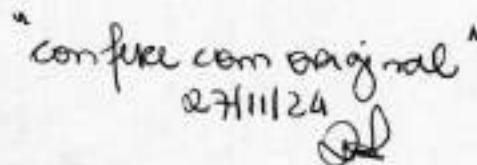 "confere com original"
27/11/24